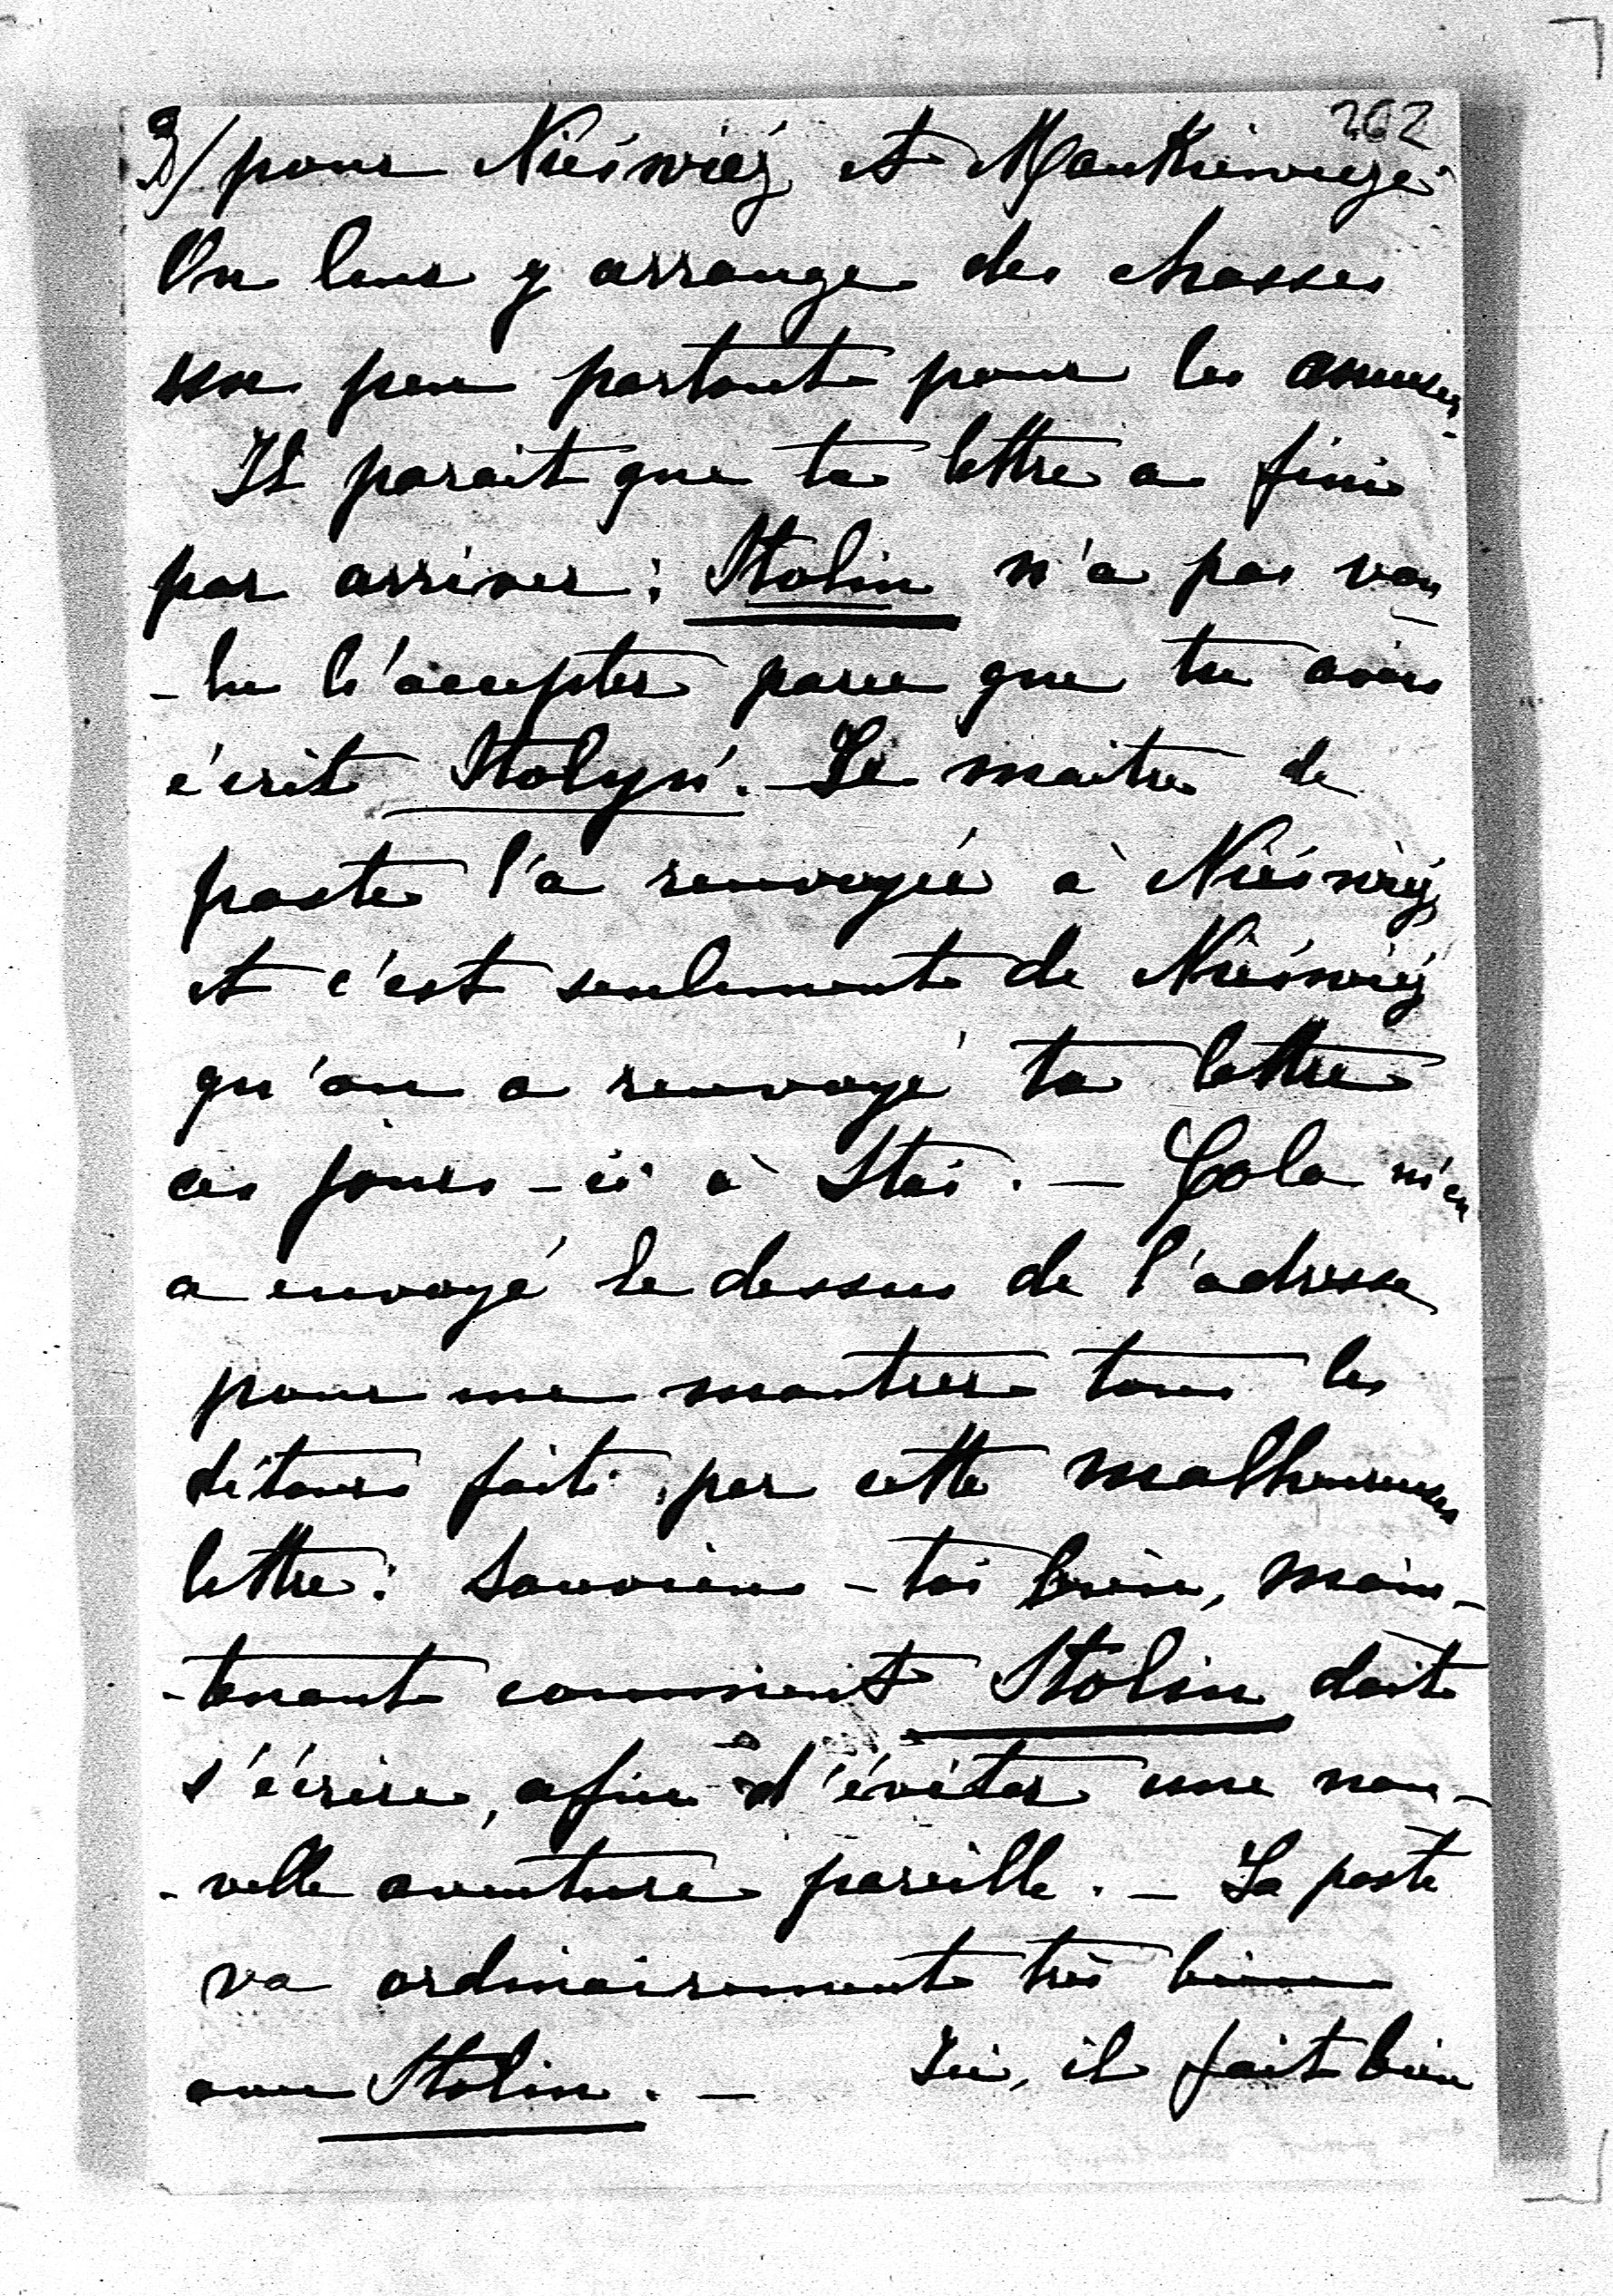 262
3/ pour Nieśwież et Mańkiewicze
On leur y arrange des chasses
un peu partout pour les amuser.
Il parait que ta lettre a fini
par arriver : Stolin n'a pas vou
-lu l'accepter parce que tu avais
écrit Stolyń. – Le maitre de
poste l'a renvoyée à Nieśwież
et c'est seulement de Nieśwież
qu'on a renvoyé ta lettre
ces jours-ci à Staś. – Lola m'en
a envoyé le dessus de l'adresse
pour me montrer tous les
détours faits par cette malheureuse
lettre : Souviens-toi bien, main-
-tenant comment Stolin doit
s'écrire, afin d'éviter une nou-
-velle aventure pareille. – La poste
va ordinairement très bien
avec Stolin. – Ici, il fait bien